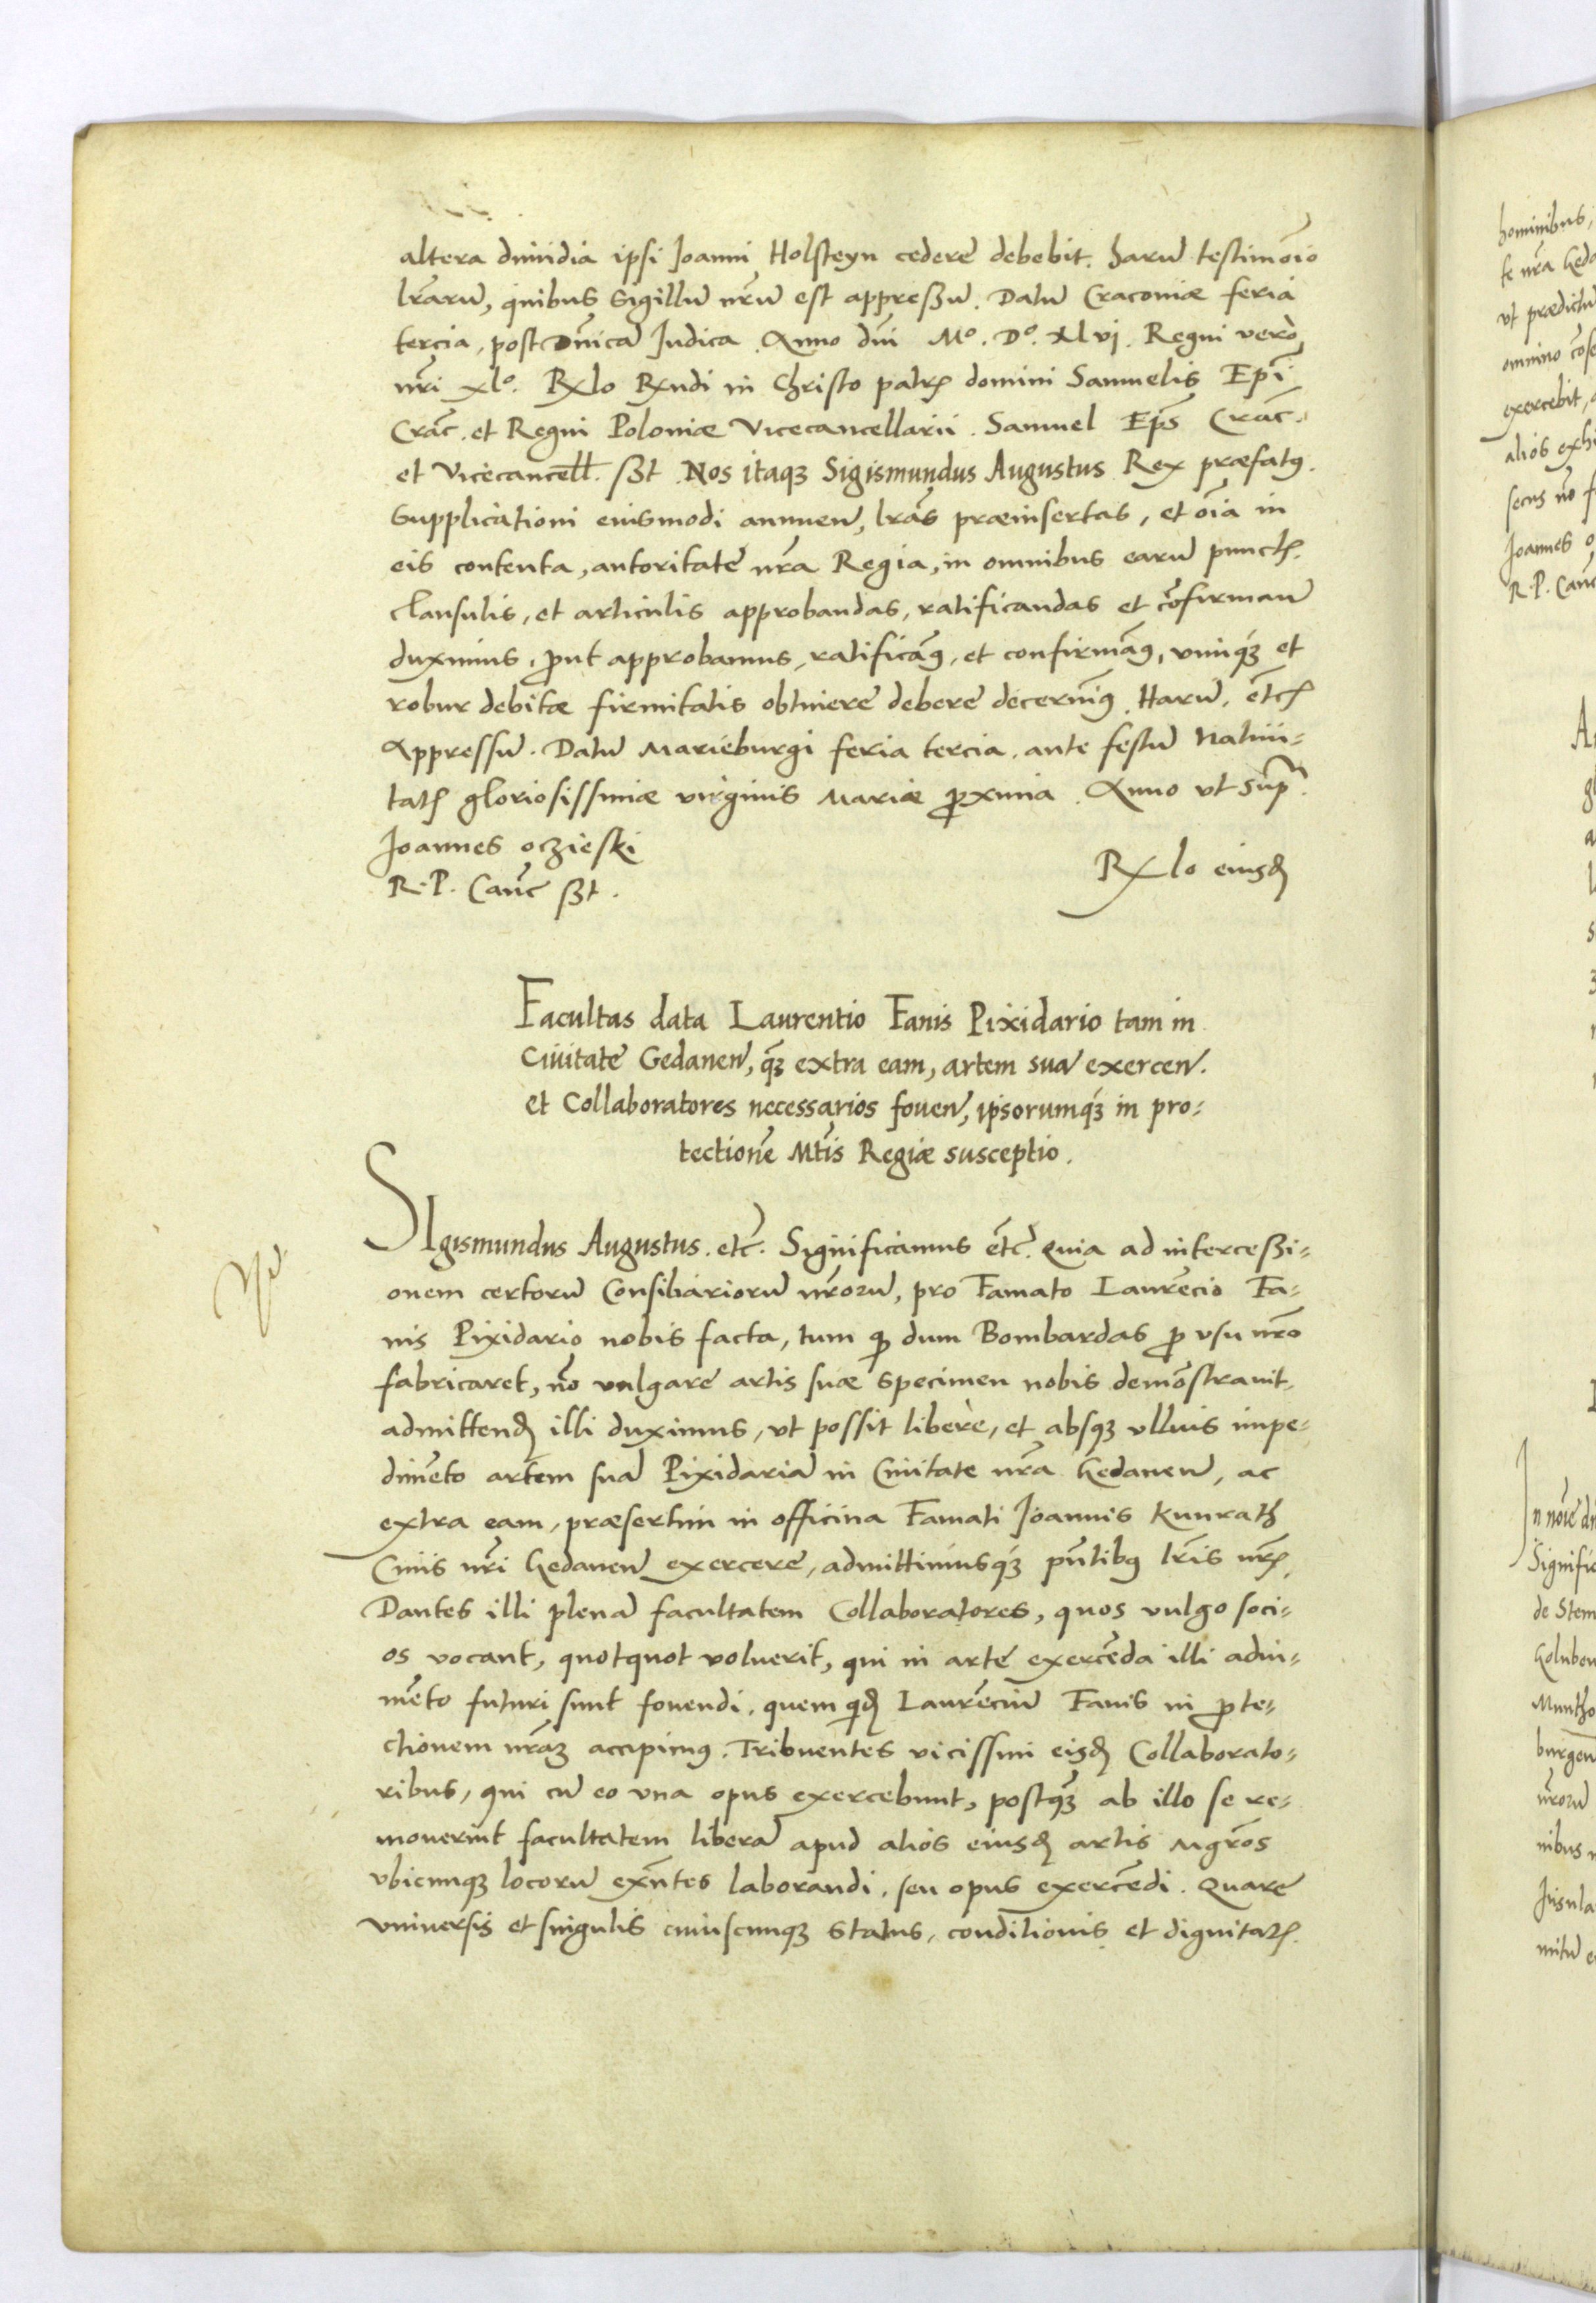 altera dimidia ipsi Joanni Holsteyn cedere debebit. harũ testimõio
lr̃arũ, quibus Sigillũ nr̃ũ est appreßũ. Datũ Cracoviæ feria
tercia, post Dñicã Judica. Anno dñi Mº. Dº. xlvi. Regni vero
nr̃i xlº. Rxlo Rxndi in Christo patrꝭ domini Samuelis Ep̃i
Crãc. et Regni Poloniæ Vicecancellarii. Samuel Ep̃s Crãc.
et Vicecancell̃. sßt. Nos itaqꝫ Sigismundus Augustus Rex præfatꝰ.
Supplicationi eiusmodi annueñ, lr̃as præinsertas, et oĩa in
eis contenta, autoritate nr̃a Regia, in omnibus earũ punctꝭ.
clausulis, et articulis approbandas, ratificandas et cõfirmañ
duximus, ꝓut approbamus, ratificãꝰ, et confirmãꝰ, vimqꝫ et
robur debitæ firmitatis obtinere debere decernĩꝰ. Harũ. et̃cꝭ
Appressũ. Datũ Marieburgi feria tercia. ante festũ Natiui-
tatꝭ gloriosissimæ virginis Mariæ ꝓxima. Anno vt sup̃.
Joannes oczieski
R. P. Canc̃ sßt.
Rxlo eiusd̃
Facultas data Laurentio Fanis Pixidario tam in
Ciuitate Gedaneñ, qꝫ̃ extra eam, artem suã exerceñ.
et Collaboratores necessarios foueñ, ipsorumqꝫ in pro-
tectionẽ Mt̃is Regiæ susceptio.
SIgismundus Augustus. etc̃. Significamus et̃c. Quia ad interceßi-
onem certorũ Consiliariorũ nr̃orũ, pro Famato Laurẽcio Fa-
nis Pixidario nobis facta, tum ꝙ dum Bombardas ꝓ vsu nr̃o
fabricaret, nõ vulgare artis suæ specimen nobis demõstrauit,
admittend̃ illi duximus, vt possit libere, et absqꝫ vlluis impe-
dimẽto artem suã Pixidariã in Ciuitate nr̃a Gedaneñ, ac
extra eam, præsertim in officina Famati Joannis Kunrath
Ciuis nr̃i Gedaneñ exercere, admittimusqꝫ pñtibꝰ lr̃is nr̃ꝭ,
Dantes illi plenã facultatem Collaboratores, quos vulgo soci-
os vocant, quotquot voluerit, qui in arte exercẽda illi adiu-
mẽto futuri sunt fouendi. quem qid̃ Laurẽciũ Fanis in ꝓte-
ctionem nr̃aꝫ accipimꝰ. Tribuentes vicissim eisd̃ Collaborato-
ribus, qui cũ eo vna opus exercebunt, postqꝫ̃ ab illo se re-
mouerint facultatem liberã apud alios eiusd̃ artis Mgr̃os
vbicunqꝫ locorũ exñtes laborandi, seu opus exercẽdi. Quare
vniversis et singulis cuiuscunqꝫ status, conditionis et dignitatꝭ.